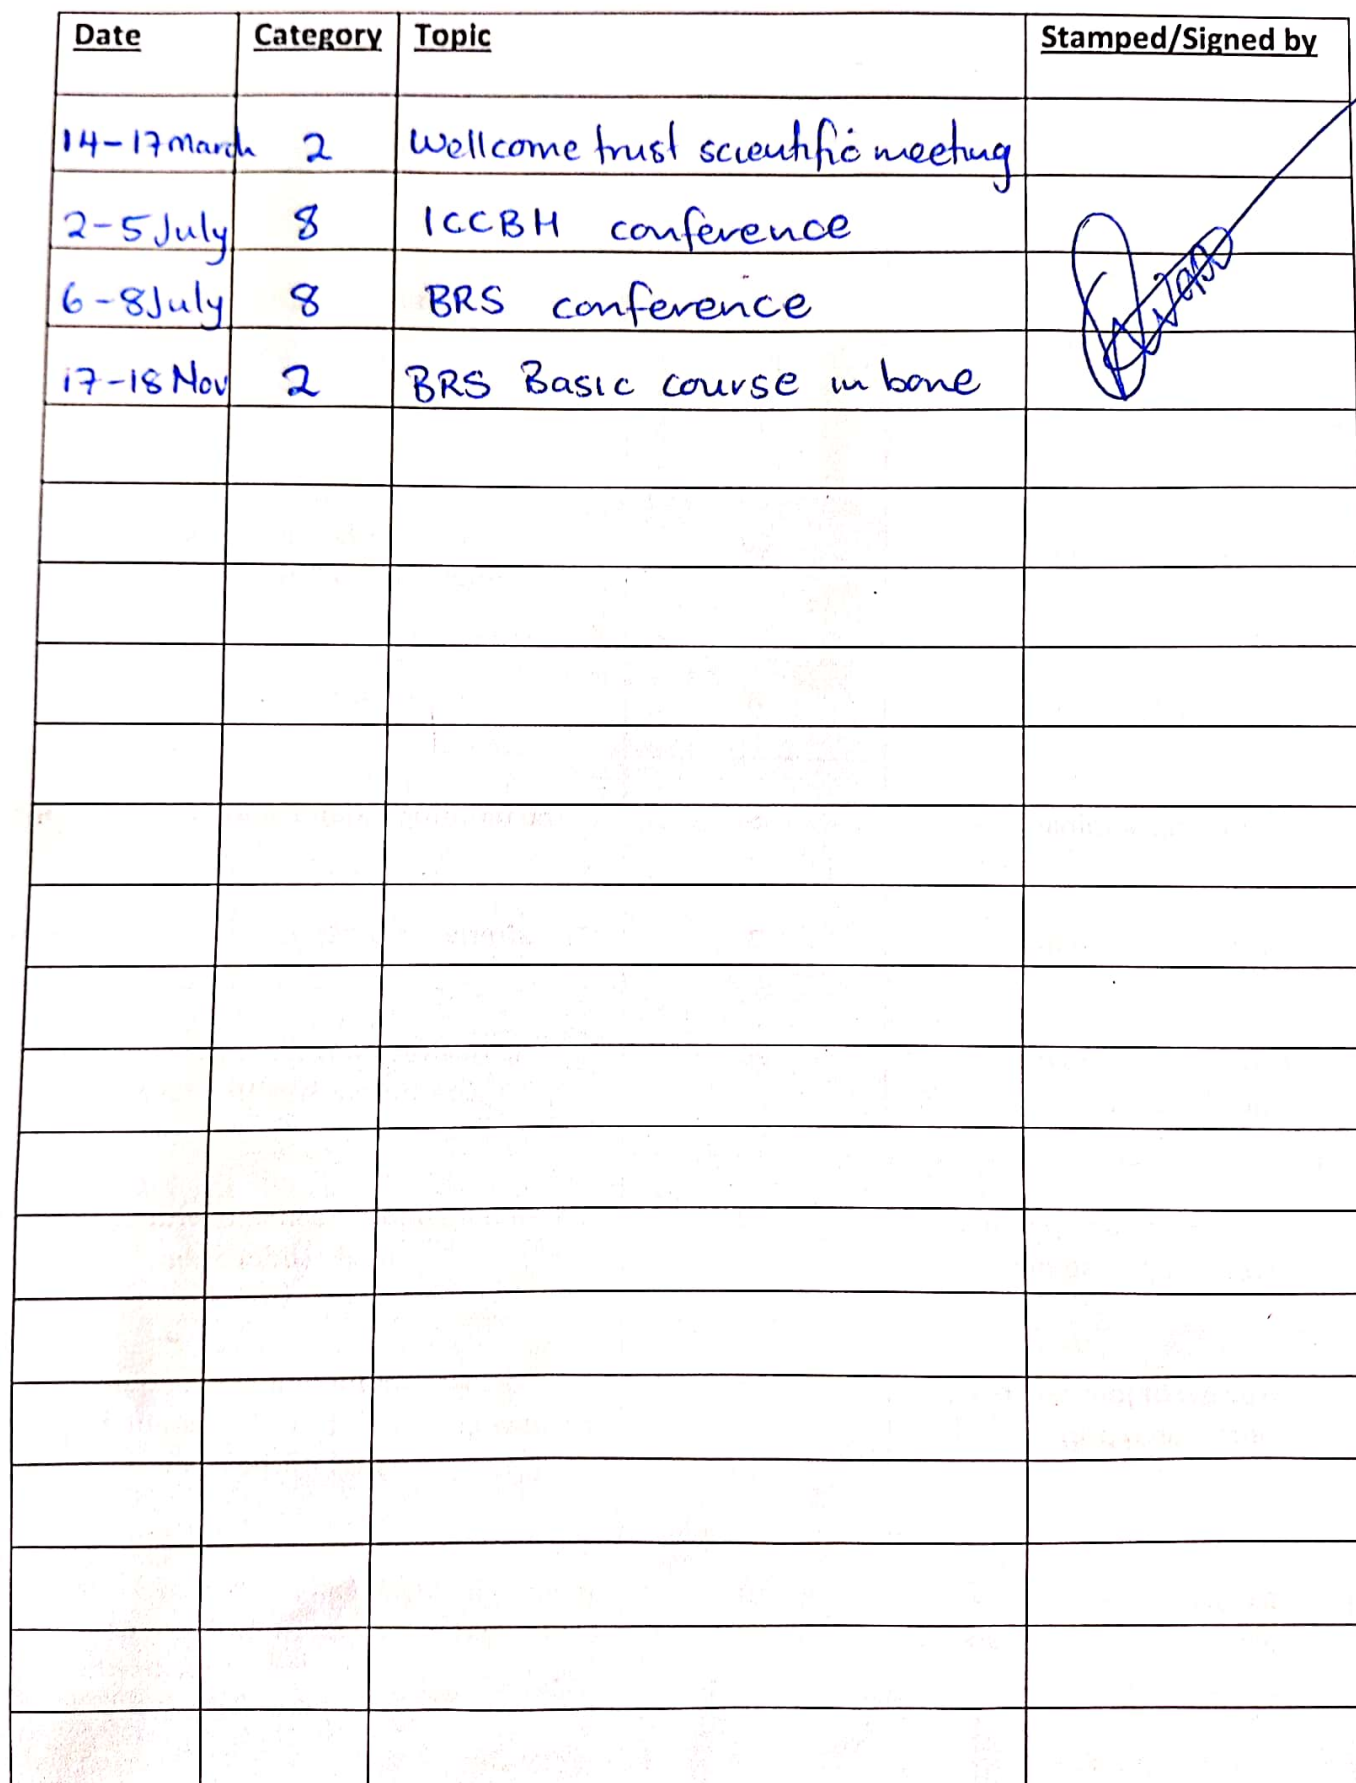 Date Category Topic Stamped/Signed by
14-17 march 2 Wellcome trust scientific meeting
2-5 July 8 ICCBH conference
6-8 July 8 BRS conference
17-18 Nov 2 BRS Basic course in bone